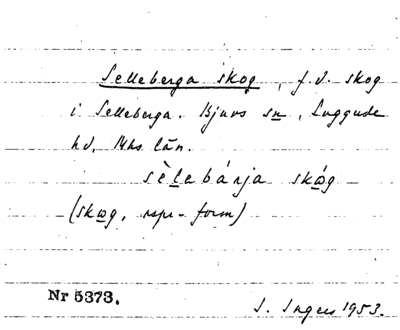 Selleberga skog, f.d. skog
i Selleberga. Bjuvs sn, Luggude
hd, Mhs län.
sèlabárja skóg
(skog, rspr-form)
Nr 5373.
I. Ingers 1953.